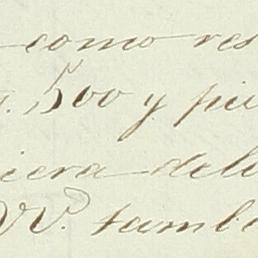 como res
500 y pu
iera deb
VV. tamb